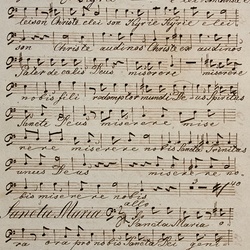 leison Christe elei son Kyrie Kyrie elei
son Christe audi nos Christe ex audi nos
Pater de caelis Deus miserere miserere
nobis fili redemptor mundi Deus Spiritus
Sancte Deus miserere mise
rere miserere nobis Sancta Trinitas
unus Deus miserere no
bis miserere nobis
Sancta Maria allo
Sancta Maria o
ra ora pro nobis Sancta Dei geni